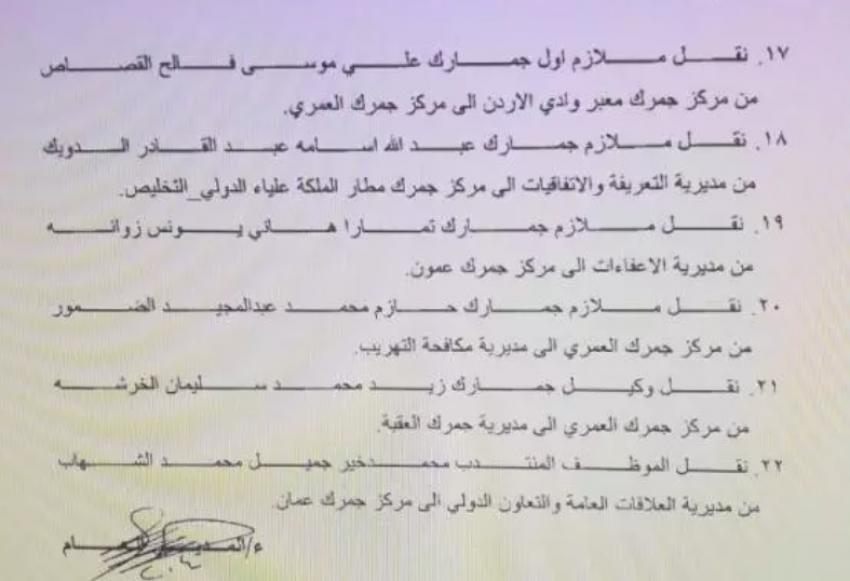 ١٧. نقل ملازم اول جمارك علي موسى فالح القصاص
من مركز جمرك معبر وادي الاردن الى مركز جمرك العمري.
١٨. نقل ملازم جمارك عبد الله اسامه عبد القادر الدويك
من مديرية التعريفة والاتفاقيات الى مركز جمرك مطار الملكة علياء الدولي_التخليص.
١٩. نقل ملازم جمارك تمارا هاني يونس زوانه
من مديرية الاعفاءات الى مركز جمرك عمون.
٢٠. نقل ملازم جمارك حازم محمد عبدالمجيد الضمور
من مركز جمرك العمري الى مديرية مكافحة التهريب.
٢١. نقل وكيل جمارك زيد محمد سليمان الخرشه
من مركز جمرك العمري الى مديرية جمرك العقبة.
٢٢. نقل الموظف المنتدب محمدخير جميل محمد الشهاب
من مديرية العلاقات العامة والتعاون الدولي الى مركز جمرك عمان.
ع/المدير العام